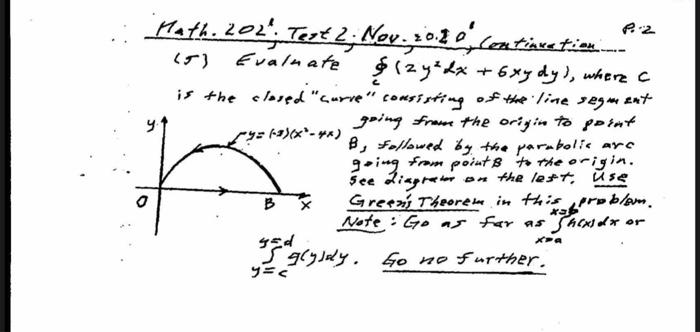 Math. 202'. Test 2; Nov. 2020' Continuation P. 2
(5) Evaluate ∮_C (2y²dx + 6xy dy), where C
is the closed "curve" consisting of the line segment
going from the origin to point
y y=(-3)(x²-4x) B, followed by the parabolic arc
going from point B to the origin.
See diagram on the left. Use
O B X Green's Theorem in this problem.
Note: Go as far as ∫_{x=a}^{x=b} h(x)dx or
∫_{y=c}^{y=d} g(y)dy. Go no further.